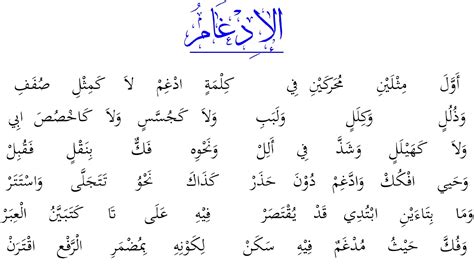 الإِدْغَامُ
أَوَّلَ مِثْلَيْنِ مُحَرَّكَيْنِ فِي كِلْمَةٍ ادْغِمْ لاَ كَمِثْلِ صُفَفِ
وَذُلُلٍ وَكِلَلٍ وَلَبَبِ وَلاَ كَجُسَّسٍ وَلاَ كَاخْصُصَ ابِي
وَلاَ كَهَيْلَلٍ وَشَذَّ فِي أَلِلْ وَنَحْوِهِ فَكٌّ بِنَقْلٍ فَقُبِلْ
وَحَيِيَ افْكُكْ وَادَّغِمْ دُوْنَ حَذَرْ كَذَاكَ نَحْوُ تَتَجَلَّى وَاسْتَتَرْ
وَمَا بِتَاءَيْنِ ابْتُدِي قَدْ يُقْتَصَرْ فِيْهِ عَلَى تَا كَتَبَيَّنُ الْعِبَرْ
وَفُكَّ حَيْثُ مُدْغَمٌ فِيْهِ سَكَنْ لِكَوْنِهِ بِمُضْمَرِ الرَّفْعِ اقْتَرَنْ